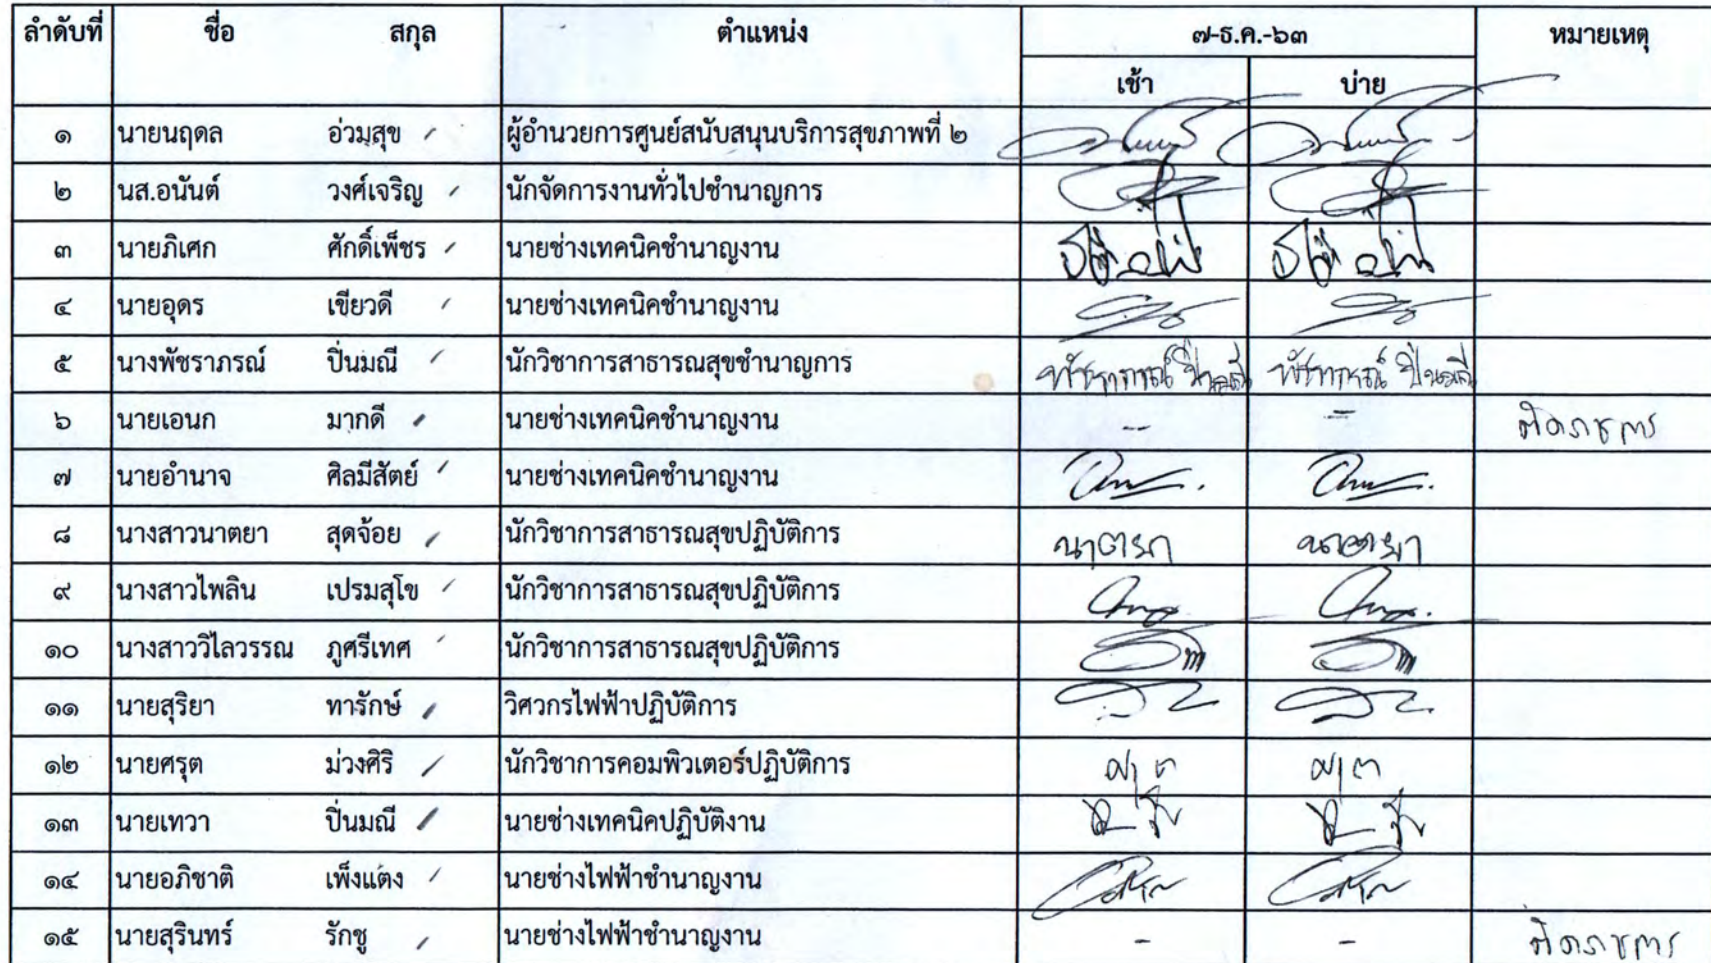 ลำดับที่ ชื่อ สกุล ตำแหน่ง ๗-ธ.ค.-๖๓ หมายเหตุ
เช้า บ่าย
๑ นายนฤดล อ่วมสุข ผู้อำนวยการศูนย์สนับสนุนบริการสุขภาพที่ ๒
๒ นส.อนันต์ วงศ์เจริญ นักจัดการงานทั่วไปชำนาญการ
๓ นายภิเศก ศักดิ์เพ็ชร นายช่างเทคนิคชำนาญงาน
๔ นายอุดร เขียวดี นายช่างเทคนิคชำนาญงาน
๕ นางพัชราภรณ์ ปิ่นมณี นักวิชาการสาธารณสุขชำนาญการ พัชราภรณ์ ปิ่นมณี พัชราภรณ์ ปิ่นมณี
๖ นายเอนก มากดี นายช่างเทคนิคชำนาญงาน - - ติดราชการ
๗ นายอำนาจ ศิลมีสัตย์ นายช่างเทคนิคชำนาญงาน
๘ นางสาวนาตยา สุดจ้อย นักวิชาการสาธารณสุขปฏิบัติการ นาตยา นาตยา
๙ นางสาวไพลิน เปรมสุโข นักวิชาการสาธารณสุขปฏิบัติการ
๑๐ นางสาววิไลวรรณ ภูศรีเทศ นักวิชาการสาธารณสุขปฏิบัติการ
๑๑ นายสุริยา ทารักษ์ วิศวกรไฟฟ้าปฏิบัติการ
๑๒ นายศรุต ม่วงศิริ นักวิชาการคอมพิวเตอร์ปฏิบัติการ
๑๓ นายเทวา ปิ่นมณี นายช่างเทคนิคปฏิบัติงาน
๑๔ นายอภิชาติ เพ็งแตง นายช่างไฟฟ้าชำนาญงาน
๑๕ นายสุรินทร์ รักชู นายช่างไฟฟ้าชำนาญงาน - - ติดราชการ